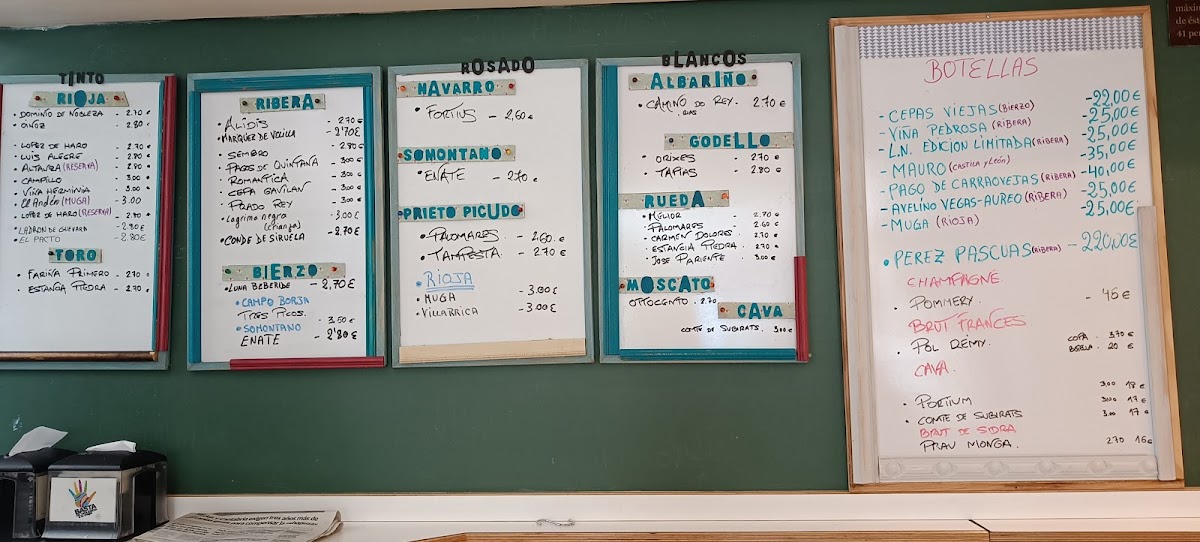 TINTO
RIOJA
• DOMINIO DE NOBLEZA - 2.70 €
• OINOZ - 2.80
• LOPEZ DE HARO - 2.70 €
• LUIS ALEGRE - 2.80 €
• ALTANZA (RESERVA) - 2.80 €
• CAMPILLO - 3.00 €
• VIÑA HERMINIA - 3.00 €
• El Andén (MUGA) - 3.00
• LOPEZ DE HARO (RESERVA) - 2.80 €
• LADRON DE GUEVARA - 2.80 €
• EL PACTO - 2.80€
TORO
• FARIÑA PRIMERO - 2.70 €
• ESTANCIA PIEDRA - 2.70 €
RIBERA
• ALIDIS - 2.70 €
• MARQUEZ DE VELILLA - 2'70€
• SEMBRO - 2.80 €
• PAGOS DE QUINTANA - 3.00 €
• ROMANTICA - 3.00 €
• CEPA GAVILAN - 3.00 €
• PRADO REY - 3.00 €
• Lagrima negra (crianza) - 3.00 €
• CONDE DE SIRUELA - 2.70 €
BIERZO
• LUNA BEBERIDE - 2,70€
• CAMPO BORJA
TRES PICOS. - 3.50 €
• SOMONTANO
ENATE - 2'80 €
ROSADO
NAVARRO
• FORTIUS - 2,60 €
SOMONTANO
• ENATE - 2.70 €
PRIETO PICUDO
• PALOMARES. - 2.60 €
• TAMPESTA. - 2.70 €
• RIOJA
• MUGA - 3.00€
• VILLABRICA - 3.00€
BLANCOS
ALBARIÑO
• CAMINO DO REY. 2.70 €
RIAS
GODELLO
• ORIXES - 2.70 €
• TAPIAS - 2.80 €
RUEDA
• MELIOR - 2.70 €
• PALOMARES - 2.60 €
• CARMEN DOLORES - 2.70 €
• ESTANCIA PIEDRA. - 2.70 €
• JOSE PARIENTE - 3.00 €
MOSCATO
OTTOCENTO - 2.70
CAVA
COMTE DE SUBIRATS. 3.00 €
BOTELLAS
- CEPAS VIEJAS (BIERZO) - 22,00€
- VIÑA PEDROSA (RIBERA) - 25,00€
- L.N. EDICION LIMITADA (RIBERA) - 25,00€
- MAURO (CASTILLA Y LEÓN) - 35,00€
- PAGO DE CARRAOVEJAS (RIBERA) - 40,00€
- AVELINO VEGAS-AUREO (RIBERA) - 25,00€
- MUGA (RIOJA) - 25,00€
• PEREZ PASCUAS (RIBERA) - 220,00€
CHAMPAGNE
• POMMERY. - 45 €
BRUT FRANCES
• POL REMY. COPA . 3.70 €
BOTELLA . 20 €
CAVA.
3.00 18 €
• PORTIUM 3.00 17 €
• COMTE DE SUBIRATS 3.00 17 €
BRUT DE SIDRA
PRAU MONGA. 2.70 16€
máxim
de ést
41 per
BASTA